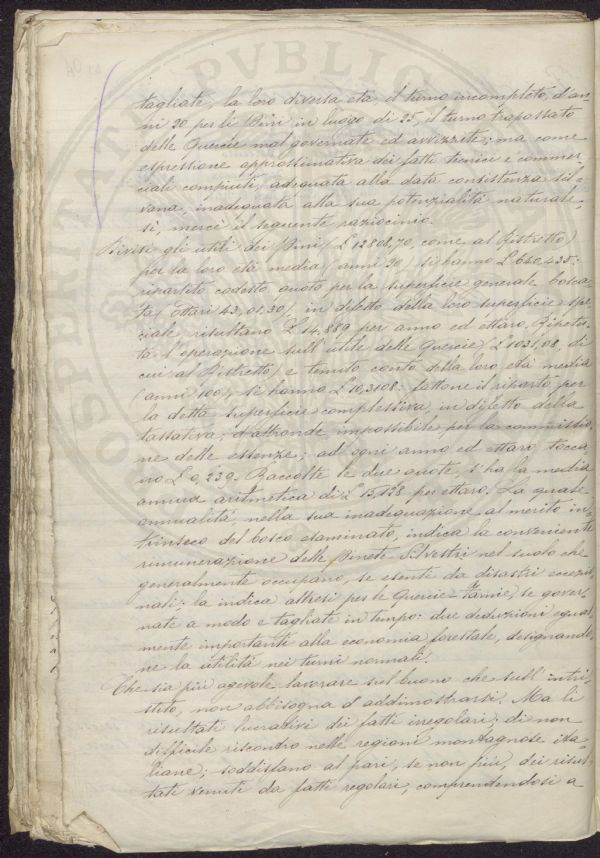 tagliate, la loro diversa età, il turno incompleto, d'an-
ni 20 per li Pini in luogo di 25, il turno trapassato
delle Quercie mal governate ed avvizzite; ma come
espressione approssimativa dei fatti tecnici e commer-
ciali compiuti, adeguata alla data consistenza sil-
vana, inadeguata alla sua potenzialità naturale-
sì, mercè il seguente raziocinio.
Divisi gli utili dei Pini (£ 12808,70, come al Ristretto)
per la loro età media (anni 20) si hanno £ 640,435:
ripartito codesto quoto per la superficie generale bosca-
ta (Ettari 43,01.30) in difetto della loro superficie spe-
ziale risultano £ 14,889 per anno ed ettaro. Ripetu-
ta l'operazione sull'utile delle Quercie (£ 1031,08 di
cui al Ristretto) e tenuto conto della loro età media
(anni 100), si hanno £ 10,3108: fattone il riparto per
la detta superficie complessiva, in difetto della
tassativa, d'altronde impossibile per la commissio-
ne delle essenze; ad ogni anno ed ettaro tocca-
no £ 0,239. Raccolte le due quote, s'ha la media
annua aritmetica di £ 15,128 per ettaro. La quale
annualità, nella sua inadeguazione al merito in-
trinseco del bosco esaminato, indica la conveniente
rimunerazione delle Pinete Silvestri nel suolo che
generalmente occupano, se esente da disastri eccezio-
nali; la indica altresì per le Quercie-Farnie, se gover-
nate a modo e tagliate in tempo: due deduzioni egual-
mente importanti alla economia forestale, designando-
ne la utilità nei turni normali.
Che sia più agevole lavorare sul buono che sull'intri-
stito, non abbisogna d'addimostrarsi. Ma li
risultati lucrativi dei fatti irregolari, di non
difficile riscontro nelle regioni montagnose ita-
liane; soddisfano al pari, se non più, dei risul-
tati venuti da fatti regolari, comprendendosi a